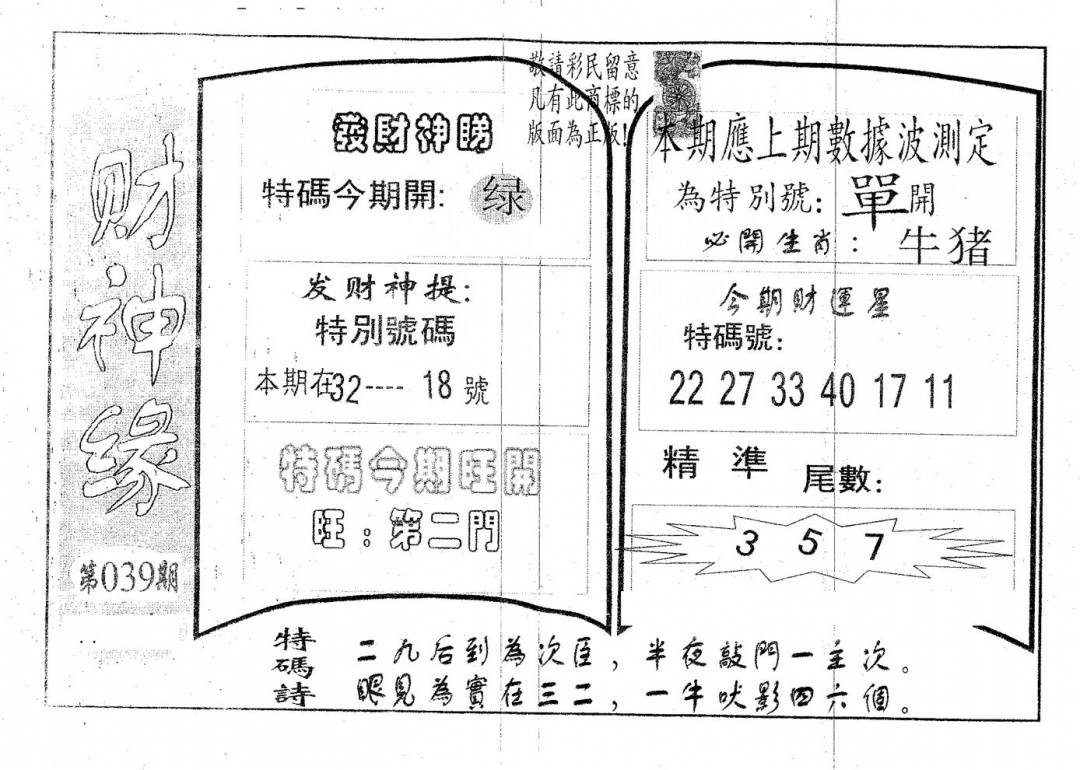 财神缘
第039期
敬請彩民留意
凡有此商標的
版面為正版!
發財神睇
特碼今期開: 绿
发财神提:
特別號碼
本期在32---- 18 號
特碼今期旺開
旺: 第二門
本期應上期數據波測定
為特別號: 單開
必開生肖: 牛猪
今期財運星
特碼號:
22 27 33 40 17 11
精準 尾數:
3 5 7
特碼詩
二九后到為次臣，半夜敲門一主次。
眼見為實在三二，一牛吠影四六個。